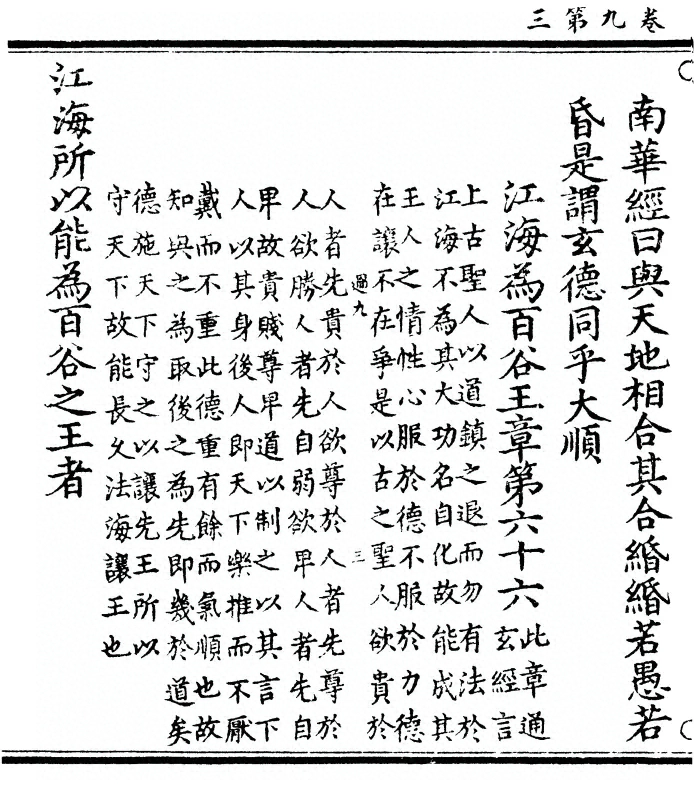 卷九第三
南華經曰與天地相合其合緡緡若愚若
昏是謂玄德同乎大順
江海為百谷王章第六十六
此章通
玄經言
上古聖人以道鎮之退而勿有法於
江海不為其大功名自化故能成其
王人之情性心服於德不服於力德
在讓不在爭是以古之聖人欲貴於
過九 三
人者先貴於人欲尊於人者先尊於
人欲勝人者先自弱欲卑人者先自
卑故貴賤尊卑道以制之以其言下
人以其身後人即天下樂推而不厭
戴而不重此德重有餘而氣順也故
知與之為取後之為先即幾於道矣
德施天下守之以讓先王所以
守天下故能長久法海讓王也
江海所以能為百谷之王者